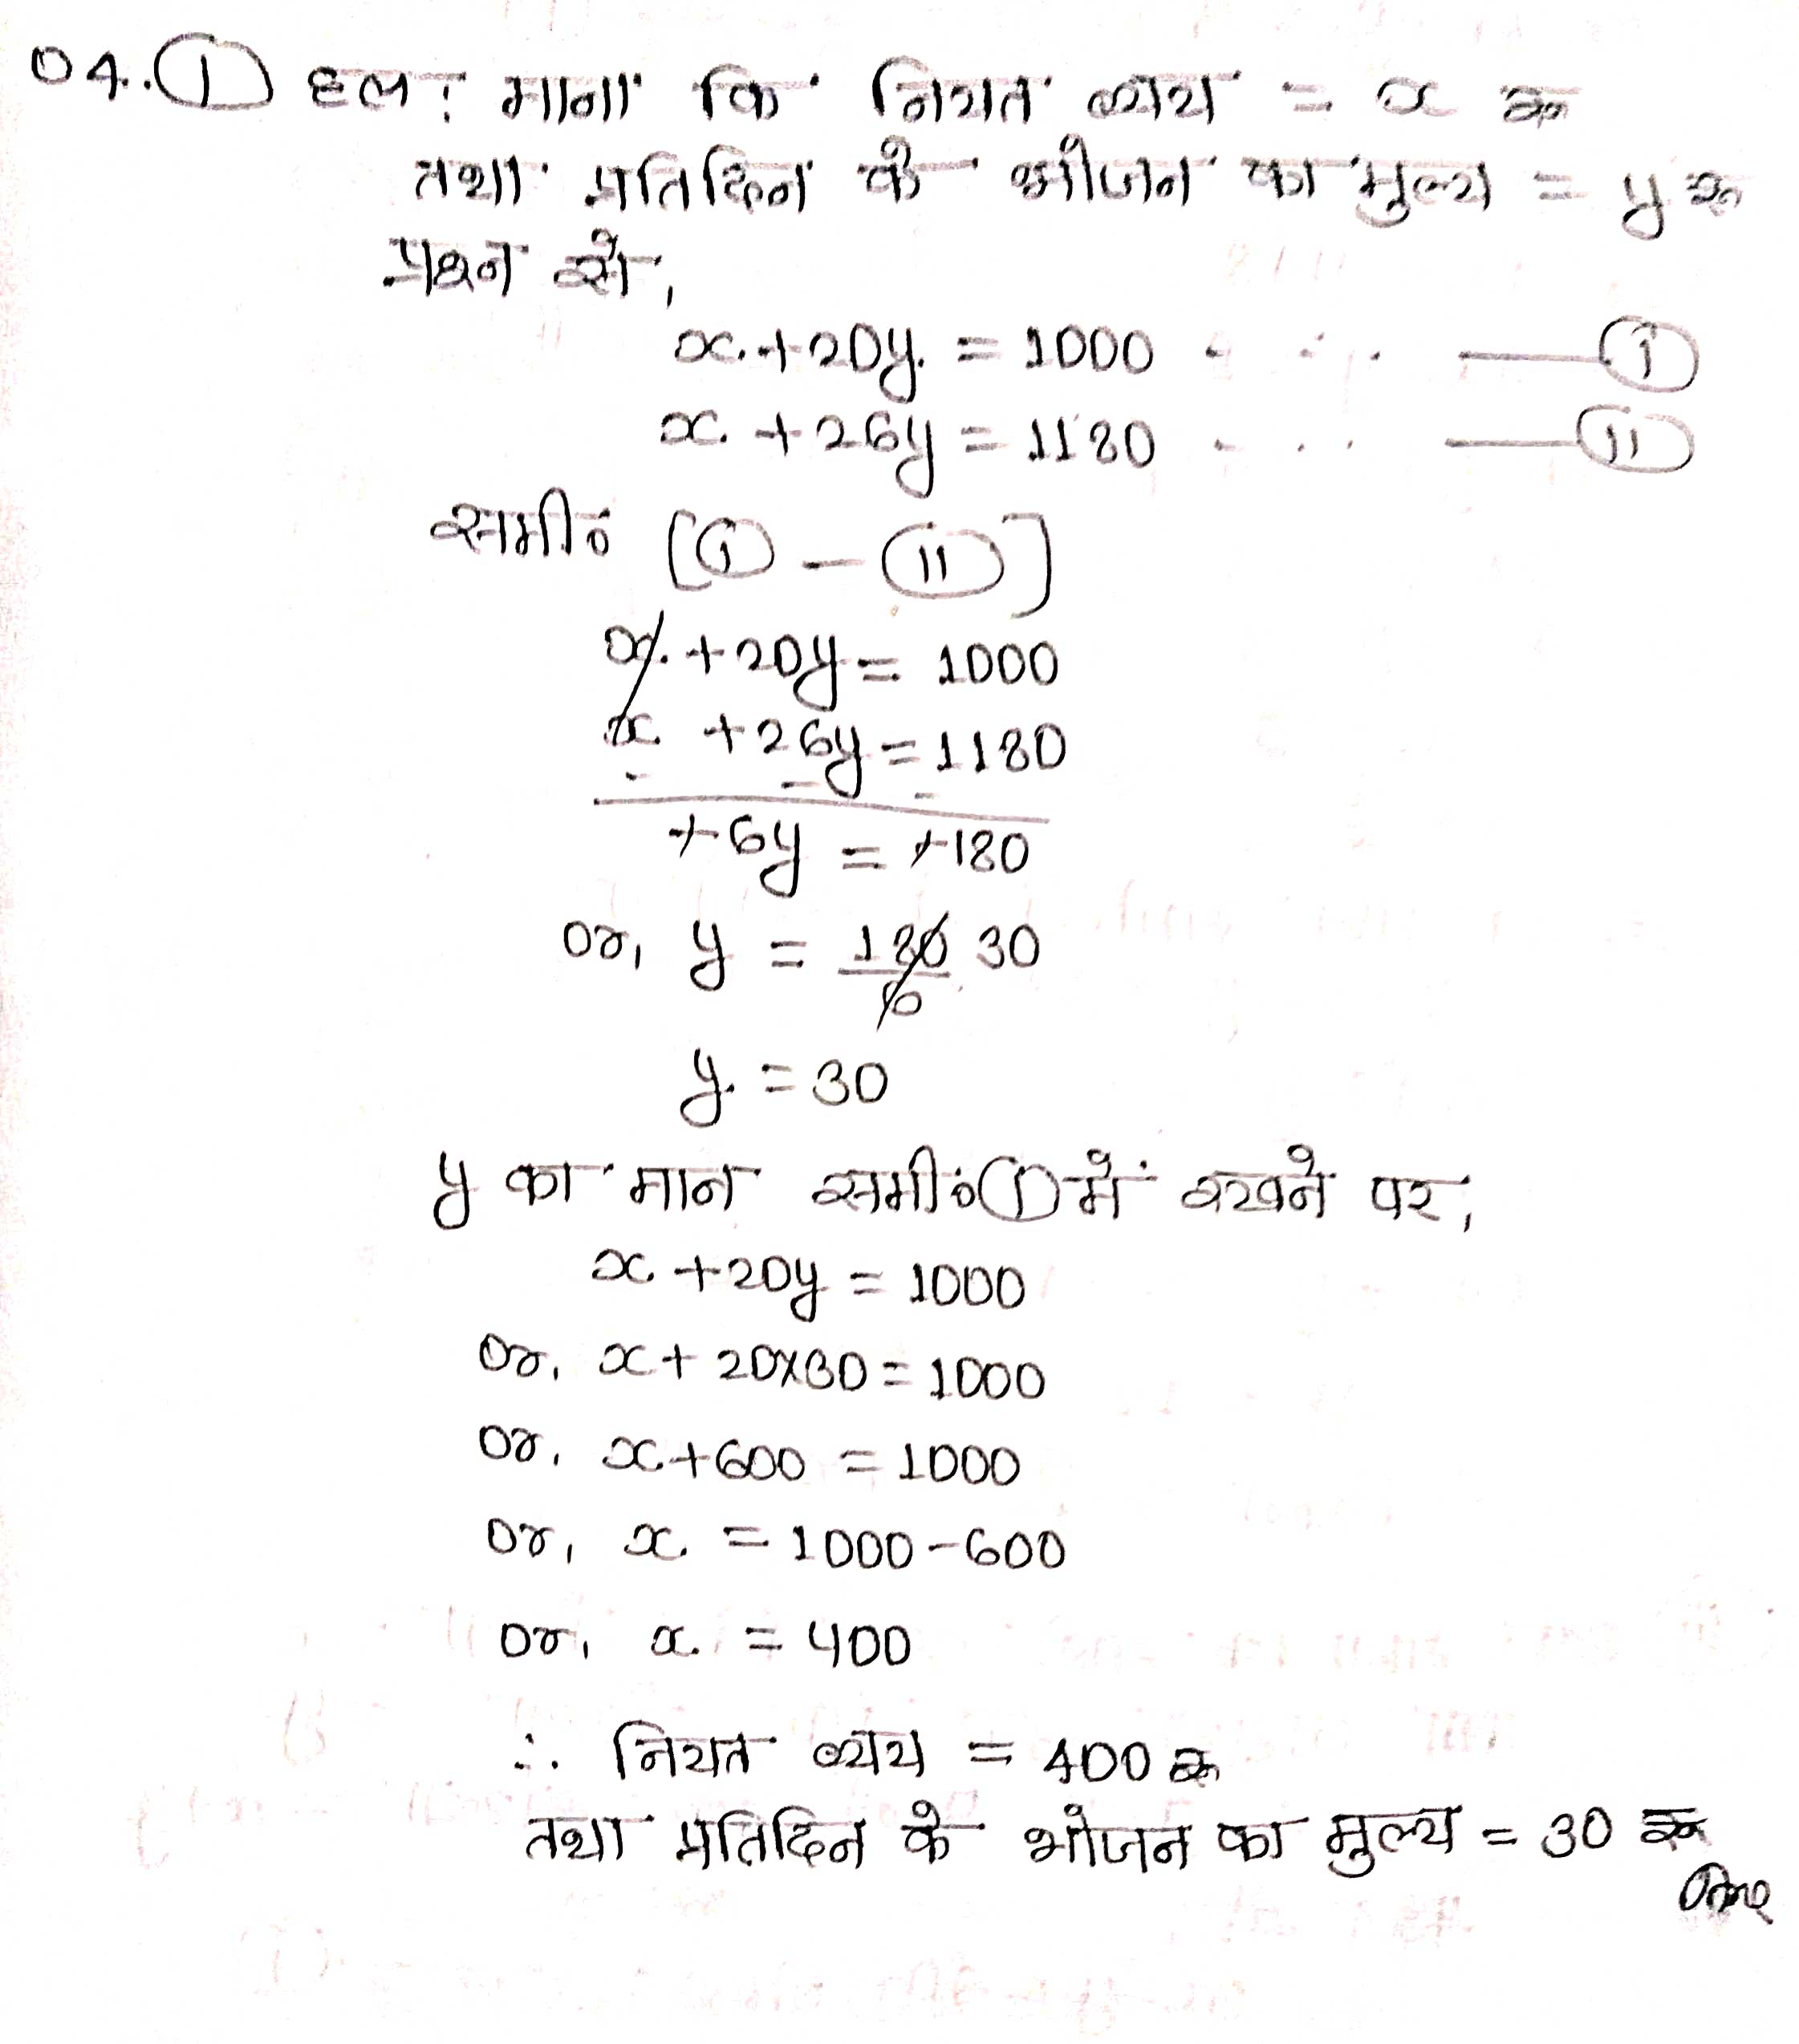 04. ① हल: माना कि नियत व्यय = x रू
तथा प्रतिदिन के भोजन का मुल्य = y रू
प्रश्न से,
x + 20y = 1000 . . . — ①
x + 26y = 1180 . . . — ⑪
समी० [① - ⑪]
x + 20y = 1000
x + 26y = 1180
- - -
+6y = +180
or, y = 180/6 30
y = 30
y का मान समी० ① में रखने पर,
x + 20y = 1000
or, x + 20×30 = 1000
or, x + 600 = 1000
or, x = 1000 - 600
or, x = 400
∴ नियत व्यय = 400 रू
तथा प्रतिदिन के भोजन का मुल्य = 30 रू
Ans